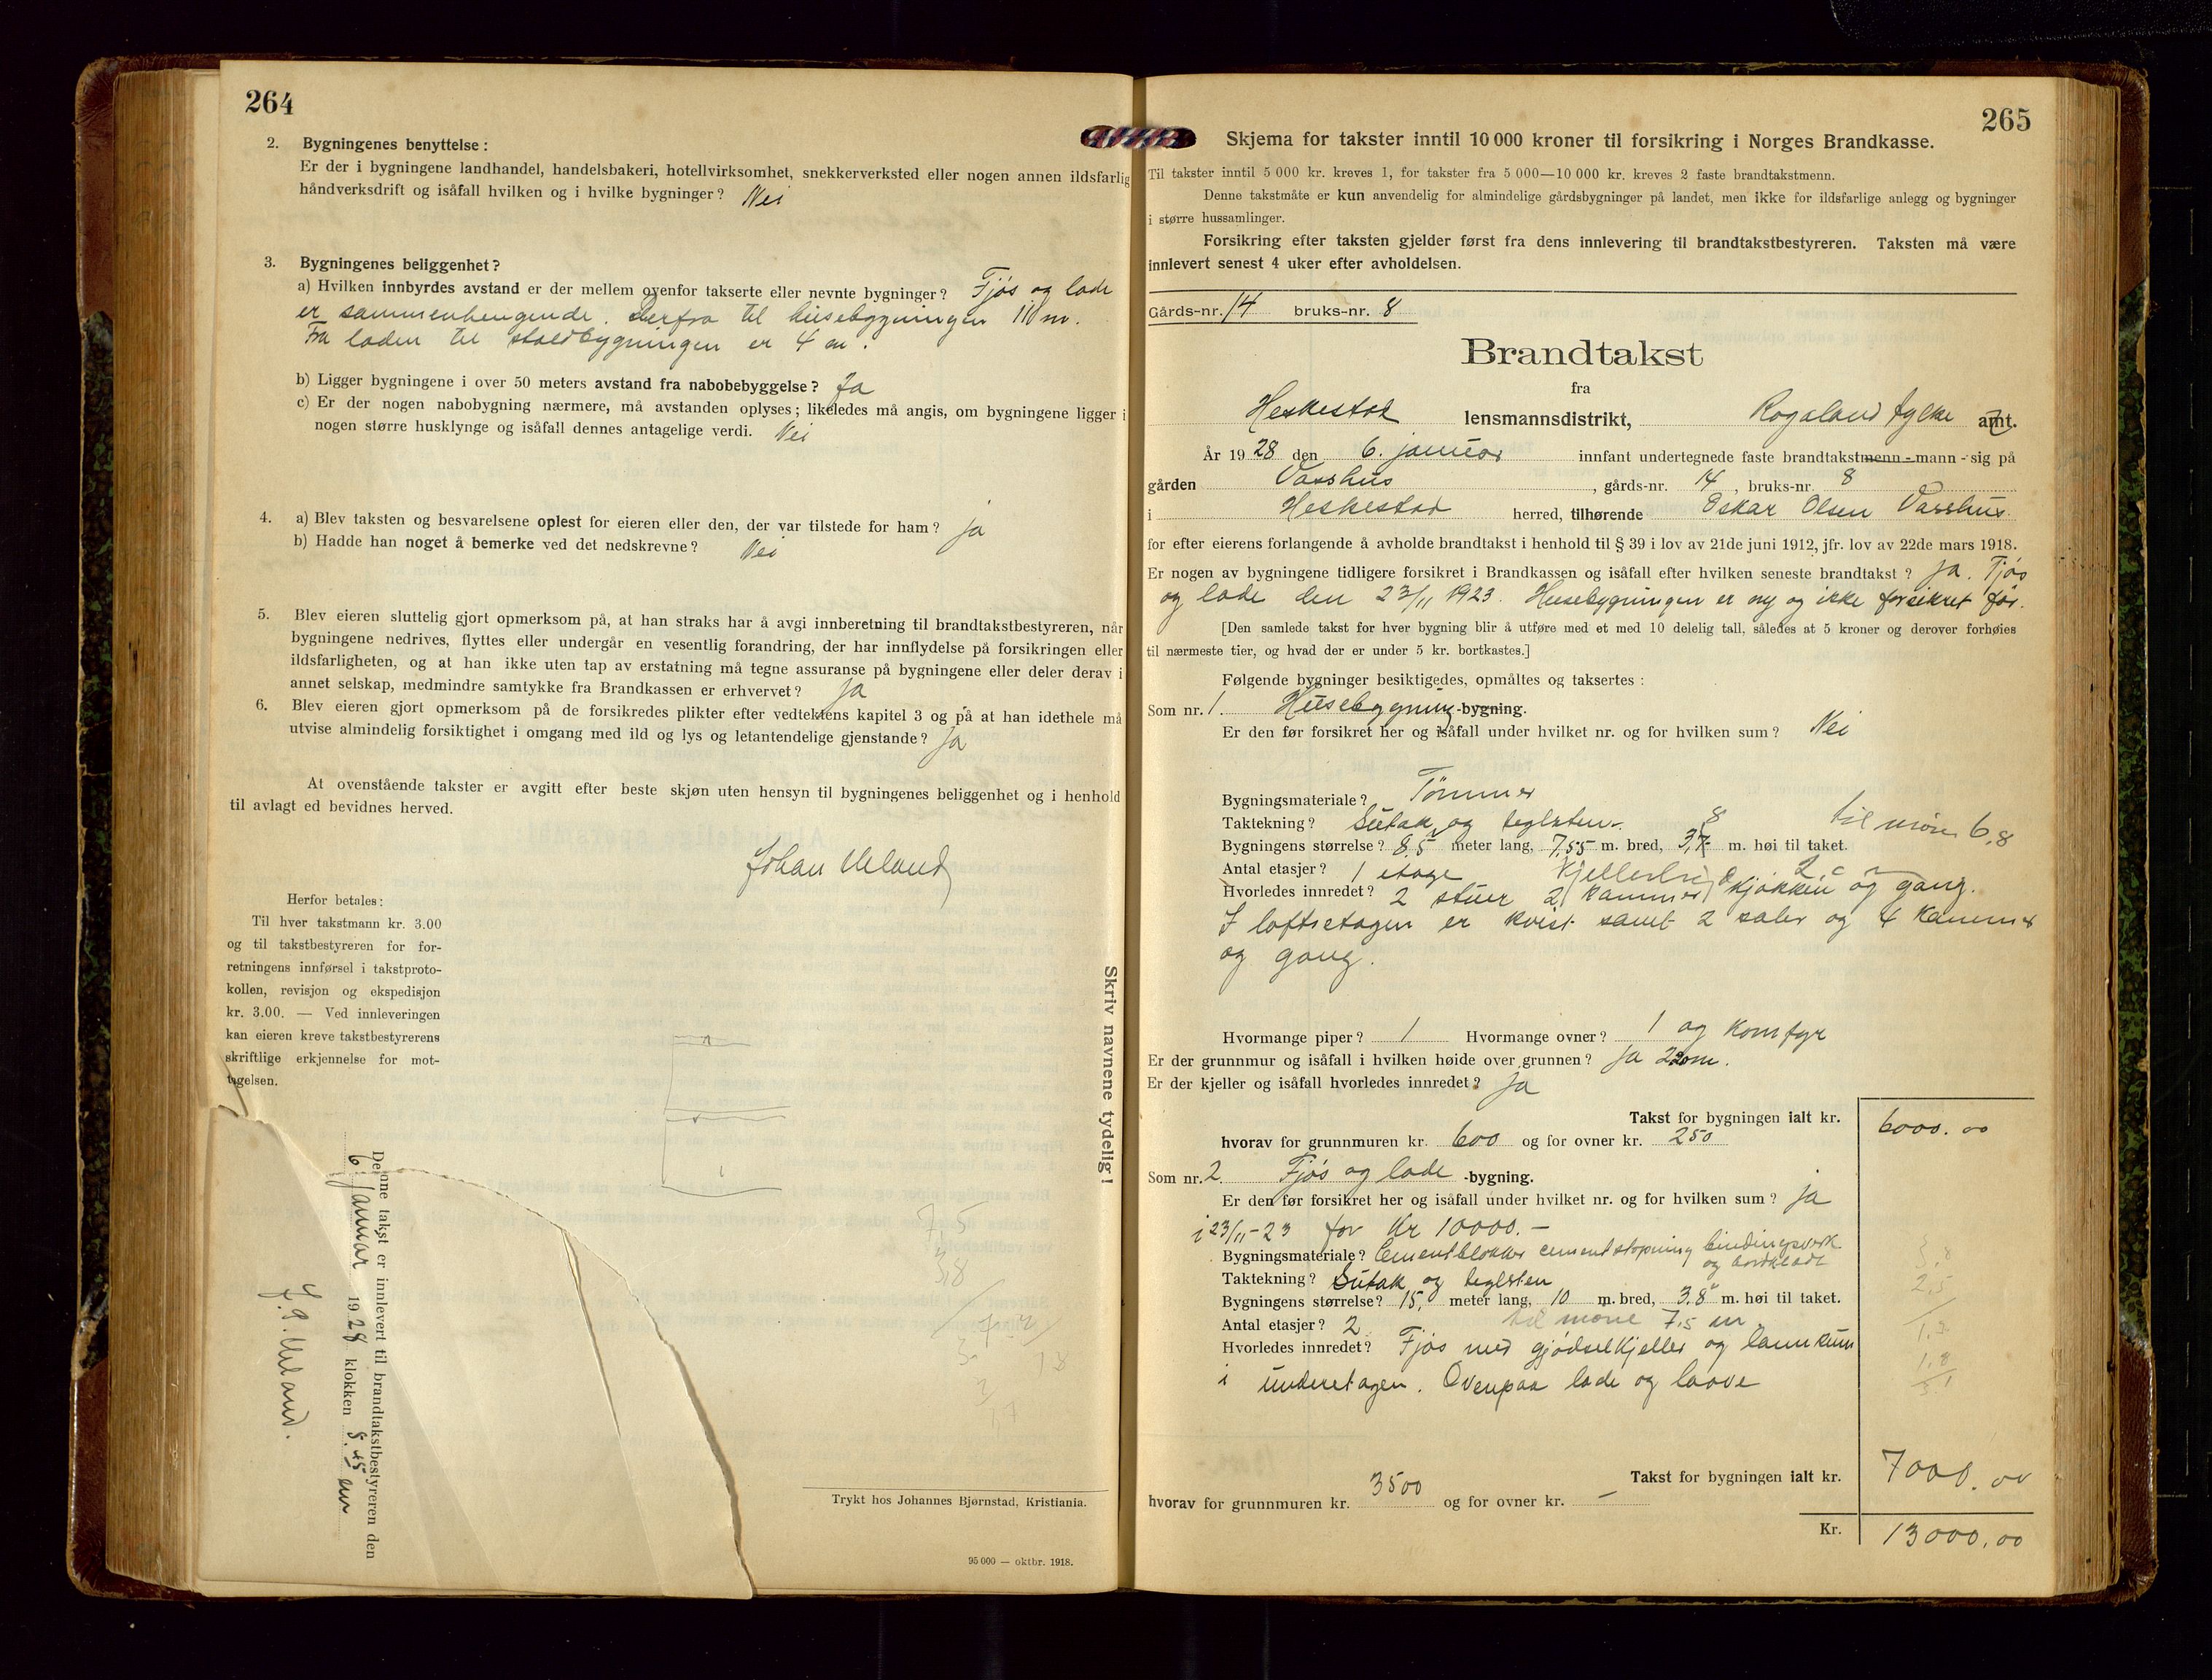 264
2. Bygningenes benyttelse :
Er der i bygningene landhandel, handelsbakeri, hotellvirksomhet, snekkerverksted eller nogen annen ildsfarlig
håndverksdrift og isåfall hvilken og i hvilke bygninger? Nei
3. Bygningenes beliggenhet?
a) Hvilken innbyrdes avstand er der mellem ovenfor takserte eller nevnte bygninger? Fjøs og lade
er sammenhengende. Derfra til husebygningen 110 m.
Fra laden til staldbygningen er 4 m.
b) Ligger bygningene i over 50 meters avstand fra nabobebyggelse? Ja
c) Er der nogen nabobygning nærmere, må avstanden oplyses; likeledes må angis, om bygningene ligger i
nogen større husklynge og isåfall dennes antagelige verdi. Nei
4. a) Blev taksten og besvarelsene oplest for eieren eller den, der var tilstede for ham? ja
b) Hadde han noget å bemerke ved det nedskrevne? Nei
5. Blev eieren sluttelig gjort opmerksom på, at han straks har å avgi innberetning til brandtakstbestyreren, når
bygningene nedrives, flyttes eller undergår en vesentlig forandring, der har innflydelse på forsikringen eller
ildsfarligheten, og at han ikke uten tap av erstatning må tegne assuranse på bygningene eller deler derav i
annet selskap, medmindre samtykke fra Brandkassen er erhvervet? Ja
6. Blev eieren gjort opmerksom på de forsikredes plikter efter vedtektens kapitel 3 og på at han idethele må
utvise almindelig forsiktighet i omgang med ild og lys og letantendelige gjenstande? Ja
At ovenstående takster er avgitt efter beste skjøn uten hensyn til bygningenes beliggenhet og i henhold
til avlagt ed bevidnes herved.
Johan Ueland
Herfor betales:
Til hver takstmann kr. 3.00
og til takstbestyreren for for-
retningens innførsel i takstproto-
kollen, revisjon og ekspedisjon
kr. 3.00. — Ved innleveringen
kan eieren kreve takstbestyrerens
skriftlige erkjennelse for mot-
tagelsen.
Skriv navnene tydelig!
Denne takst er innlevert til brandtakstbestyreren den
6 Januar 1928 klokken 8.45 em
Ueland.
7,5
3,8
Trykt hos Johannes Bjørnstad, Kristiania.
95 000 — oktbr. 1918.
265
Skjema for takster inntil 10 000 kroner til forsikring i Norges Brandkasse.
Til takster inntil 5 000 kr. kreves 1, for takster fra 5 000—10 000 kr. kreves 2 faste brandtakstmenn.
Denne takstmåte er kun anvendelig for almindelige gårdsbygninger på landet, men ikke for ildsfarlige anlegg og bygninger
i større hussamlinger.
Forsikring efter taksten gjelder først fra dens innlevering til brandtakstbestyreren. Taksten må være
innlevert senest 4 uker efter avholdelsen.
Gårds-nr. 14 bruks-nr. 8
Brandtakst
fra
Heskestad lensmannsdistrikt, Rogaland fylke amt.
År 1928 den 6. januar innfant undertegnede faste brandtakstmenn - mann - sig på
gården Vasshus, gårds-nr. 14, bruks-nr. 8
i Heskestad herred, tilhørende Oskar Olsen Vasshus.
for efter eierens forlangende å avholde brandtakst i henhold til § 39 i lov av 21de juni 1912, jfr. lov av 22de mars 1918.
Er nogen av bygningene tidligere forsikret i Brandkassen og isåfall efter hvilken seneste brandtakst? ja. Fjøs
og lade den 23/11 1923. Husebygningen er ny og ikke forsikret før.
[Den samlede takst for hver bygning blir å utføre med et med 10 delelig tall, således at 5 kroner og derover forhøies
til nærmeste tier, og hvad der er under 5 kr. bortkastes.]
Følgende bygninger besiktigedes, opmåltes og taksertes :
Som nr. 1. Husebygning -bygning.
Er den før forsikret her og isåfall under hvilket nr. og for hvilken sum? Nei
Bygningsmateriale? Tømmer
Taktekning? Sutak og teglsten. til møne 6,8
Bygningens størrelse? 8,5 meter lang, 7,55 m. bred, 3,8 m. høi til taket.
Antal etasjer? 1 etage
Hvorledes innredet? 2 stuer 2 kammer kjøkken og gang.
I loftsetagen er kvist samt 2 saler og 4 kammer
og gang.
Hvormange piper? 1 Hvormange ovner? 1 og komfyr
Er der grunnmur og isåfall i hvilken høide over grunnen? ja
Er der kjeller og isåfall hvorledes innredet? ja
Takst for bygningen ialt kr. 6000.00
hvorav for grunnmuren kr. 600 og for ovner kr. 250
Som nr. 2. Fjøs og lade -bygning.
Er den før forsikret her og isåfall under hvilket nr. og for hvilken sum? ja
i 23/11-23 for Kr 10000.—
Bygningsmateriale? Cementblokker cementstøpning bindingsverk
og bordklædt
Taktekning? Sutak og teglsten
Bygningens størrelse? 15, meter lang, 10 m. bred, 3.8 m. høi til taket.
Antal etasjer? 2 til møne 7,5 m
Hvorledes innredet? Fjøs med gjødselkjeller og
i underetagen. Ovenpaa lade og laave
Takst for bygningen ialt kr. 7000.00
hvorav for grunnmuren kr. 3500 og for ovner kr. —
Kr. 13000.00